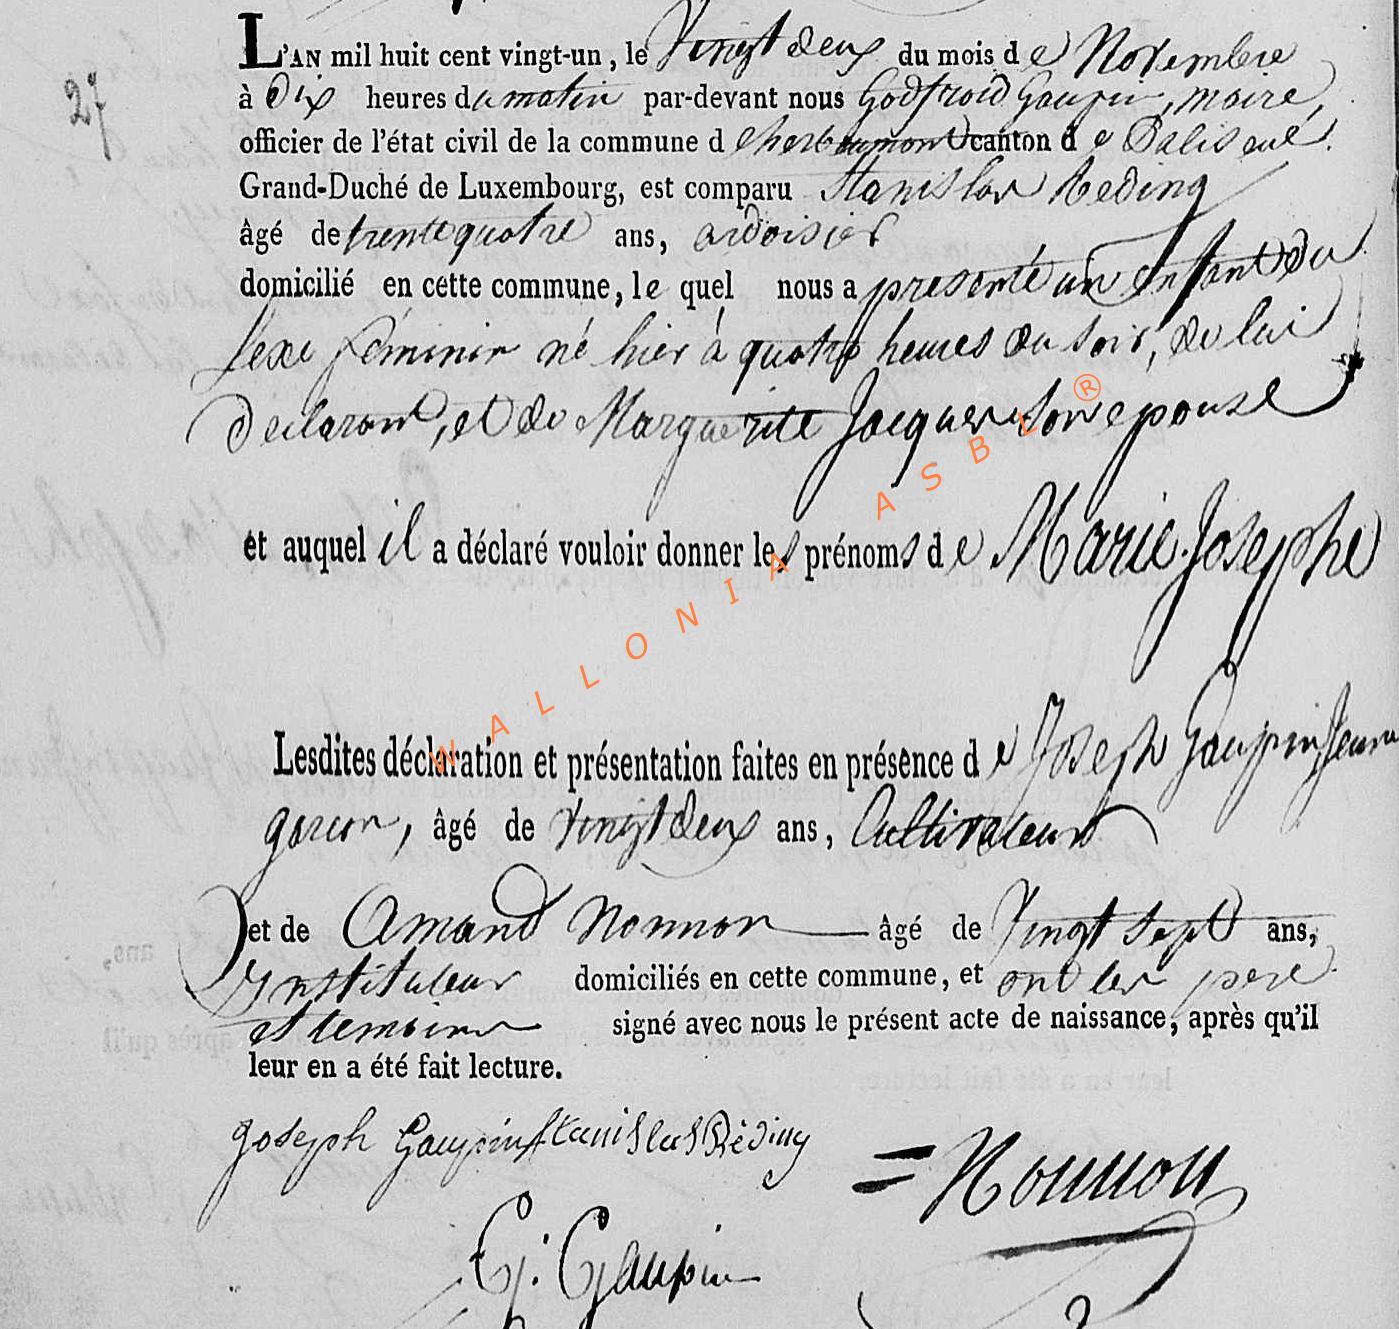 27
L'AN mil huit cent vingt-un, le Vingt deux du mois de Novembre
à Dix heures du matin par-devant nous Godfroid Gaupin, maire,
officier de l'état civil de la commune d'herbeumont canton de Paliseul.
Grand-Duché de Luxembourg, est comparu Stanislas Reding
âgé de trente quatre ans, ardoisier
domicilié en cette commune, le quel nous a presenté un enfant du
sexe féminin né hier à quatre heures du soir, de lui
declarant, et de Marguerite Jacques son epouse
et auquel il a déclaré vouloir donner les prénoms de Marie Josephe
Lesdites déclaration et présentation faites en présence de Joseph Gaupin, Jeune
garcon, âgé de Vingt deux ans, Cultivateur
et de Amand Nonnon âgé de Vingt sept ans,
Instituteur domiciliés en cette commune, et ont les pere
et temoins signé avec nous le présent acte de naissance, après qu'il
leur en a été fait lecture.
Joseph Gaupin Stanislas Réding
= Nonnon
G. Gaupin
WALLONIA ASBL ®